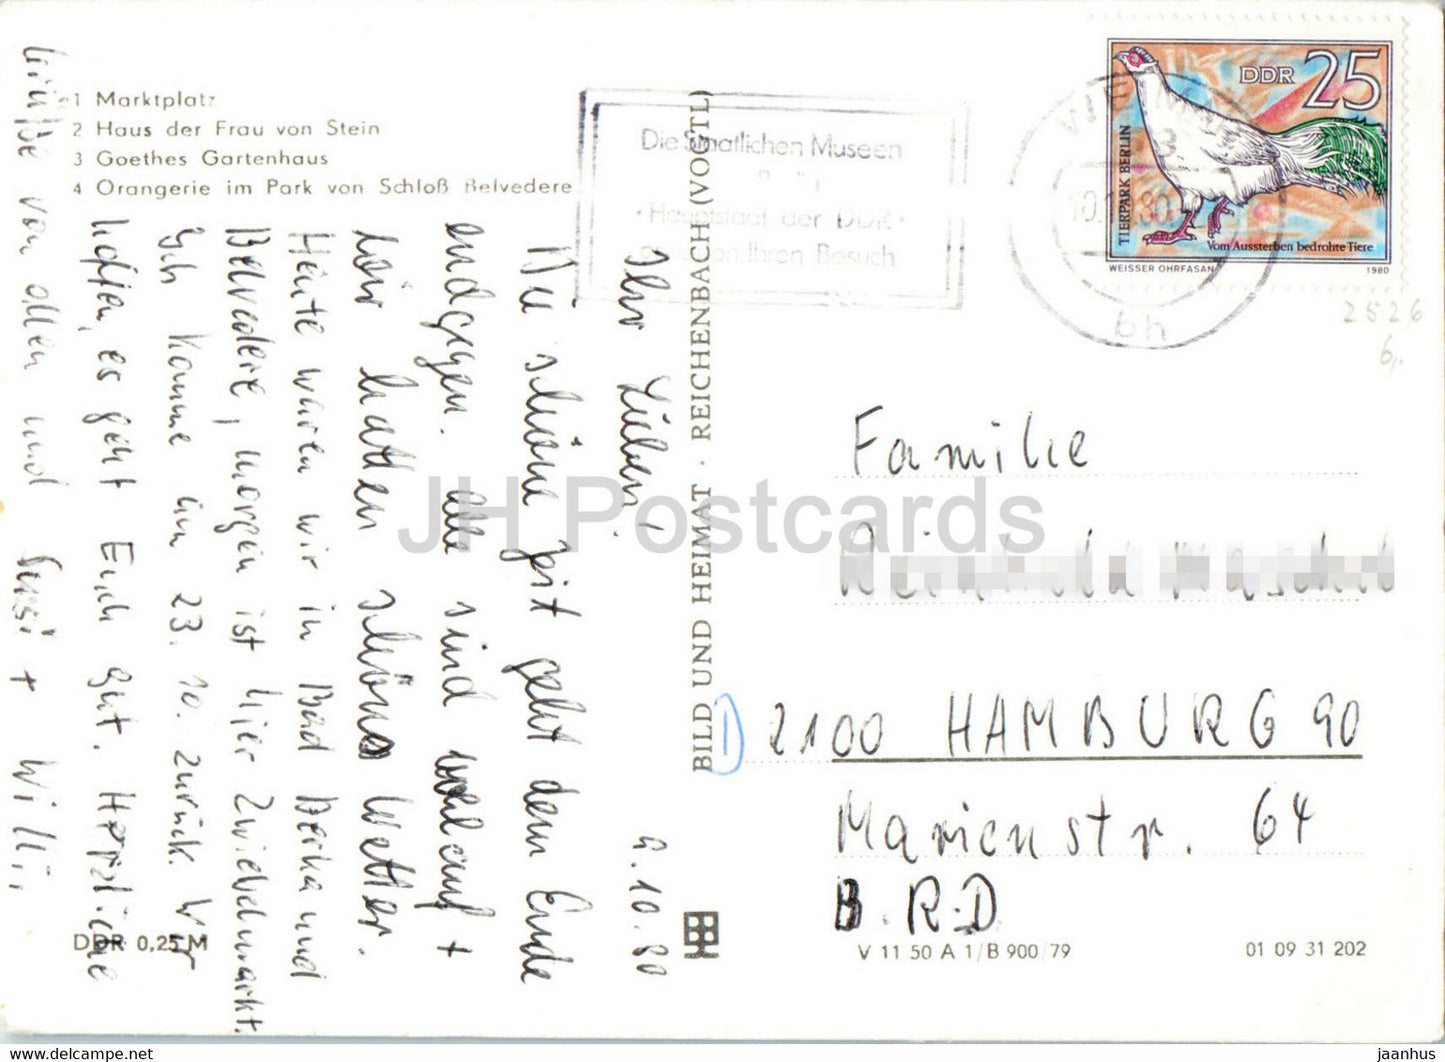 1 Marktplatz
2 Haus der Frau von Stein
3 Goethes Gartenhaus
4 Orangerie im Park von Schloß Belvedere
Die Staatlichen Museen
· Hauptstadt der DDR ·
Ihren Besuch
DDR 25
TIERPARK BERLIN
Vom Aussterben bedrohte Tiere
WEISSER OHRFASAN 1980
WEIMAR
bh
2526
6,-
9.10.80
Ihr Lieben!
Die schöne Zeit geht dem Ende
endgegen. alle sind wohlauf +
wir hatten schönes Wetter.
Heute waren wir in Bad Berka und
Belvedere, morgen ist hier Zwiebelmarkt.
Ich komme am 23.10. zurück. Wir
hoffen, es geht Euch gut. Herzliche
Grüße von allen und Susi + Willi,
BILD UND HEIMAT · REICHENBACH (VOGTL)
Familie
1) 2100 HAMBURG 90
Marienstr. 64
B.R.D.
DDR 0,25 M
V 11 50 A 1/B 900/79
01 09 31 202
JH Postcards
www.delcampe.net
jaanhus